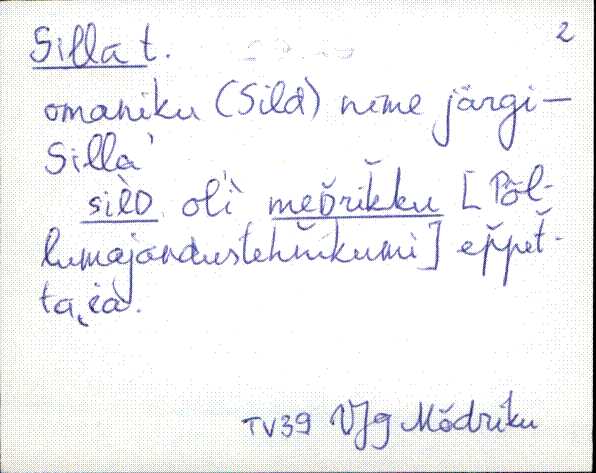 Silla t. 2
omaniku (Sild) nime järgi –
Silla'
sìlD oli meDrikku [Põl-
lumajandustehnikumi] eppet-
taia.
TV39 VJg Mõdriku